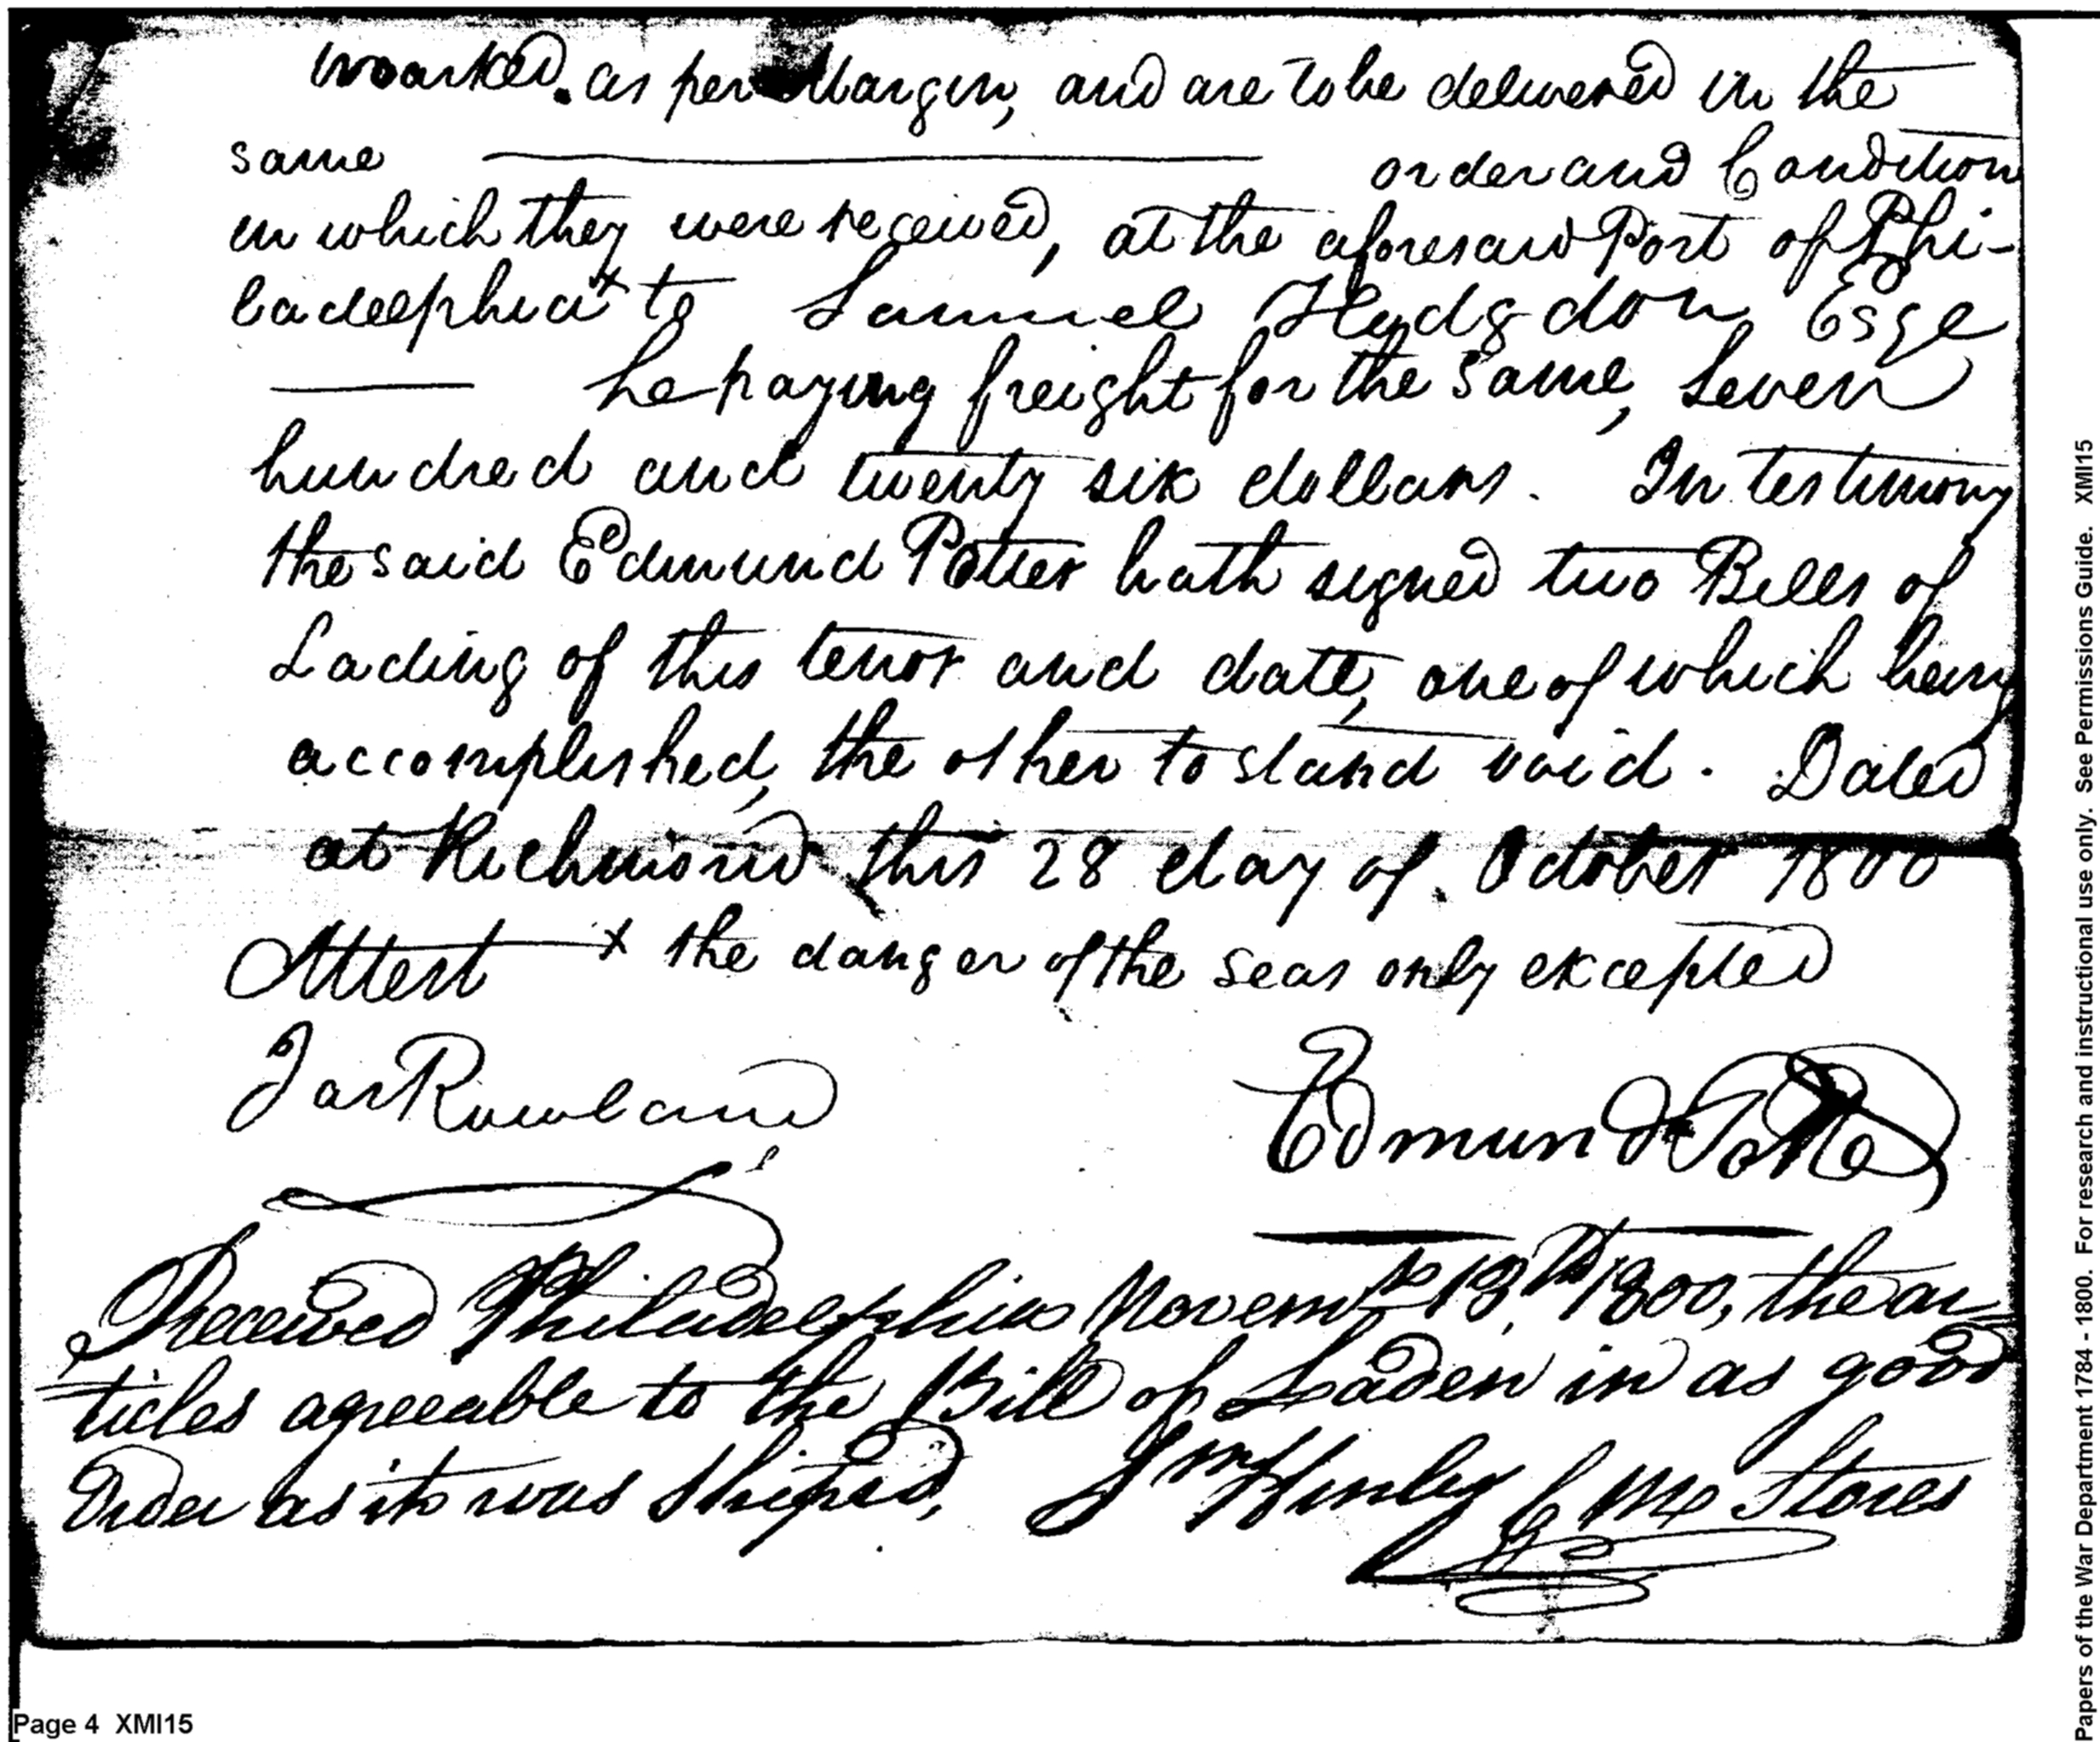 marked as per Margin, and are to be delivered in the
same order and Condition
in which they were received, at the aforesaid Port of Phi-
ladelphia x to Samuel Hodgdon Esqe
he paying freight for the same, Seven
hundred and twenty six dollars. In testimony
the said Edmund Potter hath signed two Bills of
Lading of this tenor and date, one of which being
accomplished, the other to stand void. Dated
at Richmond this 28 day of October 1800
Attest x the danger of the seas only excepted
Jas Rowland
Edmund Potter
Received Philadelphia Novemr 13th 1800, the ar=
=ticles agreeable to the Bill of Laden in as good
Order as it was Shiped,
Page 4 XMI15
Papers of the War Department 1784 - 1800. For research and instructional use only. See Permissions Guide. XMI15